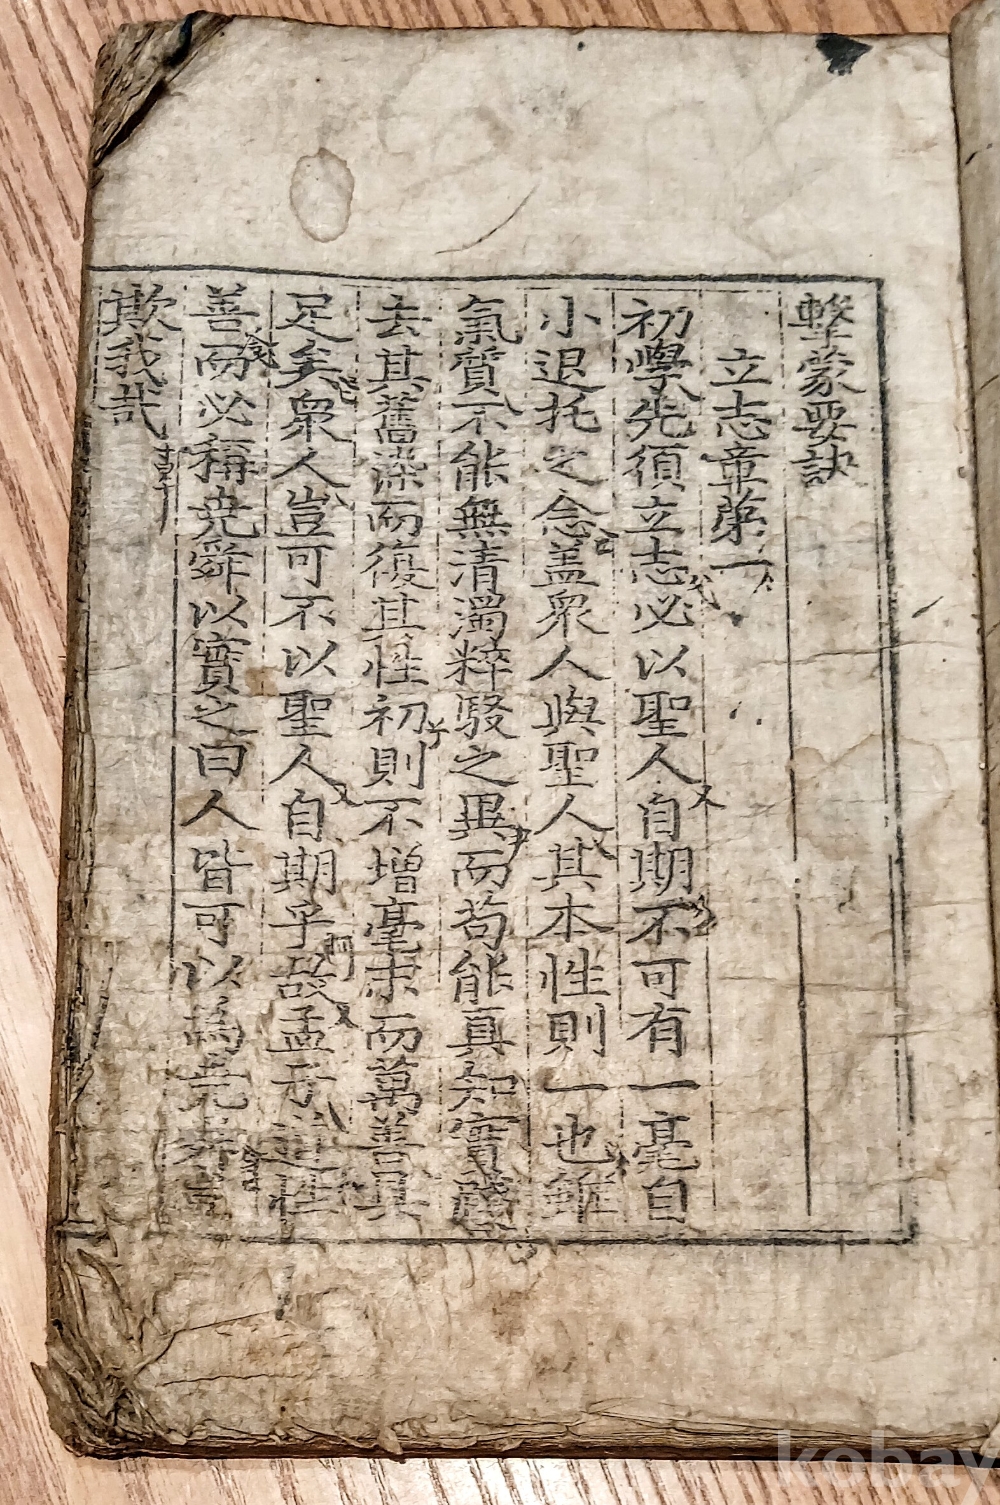 擊蒙要訣
立志章第一
初學先須立志必以聖人自期不可有一毫自
小退托之念盖衆人與聖人其本性則一也雖
氣質不能無清濁粹駁之異而苟能真知實踐
去其舊染而復其性初則不增毫末而萬善具
足矣衆人豈可不以聖人自期乎故孟子道性
善而必稱堯舜以實之曰人皆可以爲堯舜
欺我哉
kobay